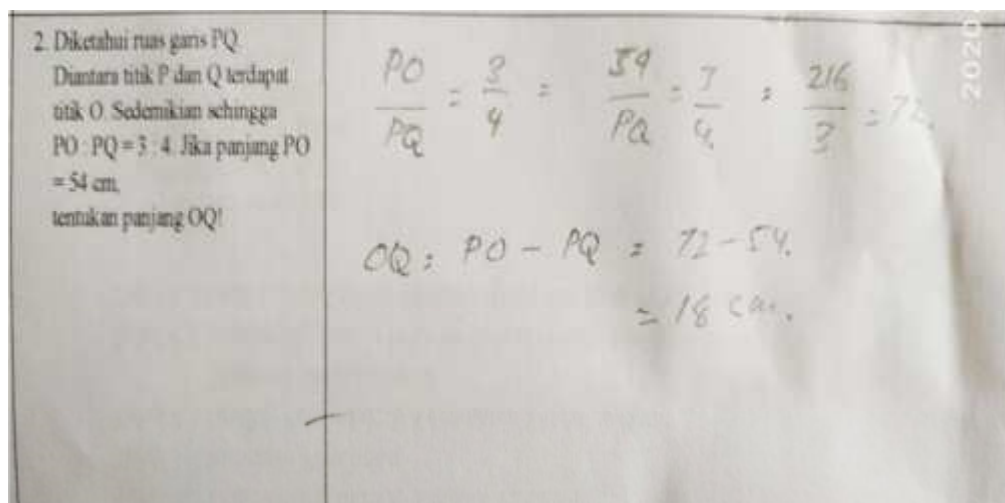 2. Diketahui ruas garis PQ.
Diantara titik P dan Q terdapat
titik O. Sedemikian sehingga
PO : PQ = 3 : 4. Jika panjang PO
= 54 cm,
tentukan panjang OQ!
PO/PQ = 3/4 = 54/PQ = 3/4 = 216/3 = 72.
OQ = PO - PQ = 72 - 54.
= 18 cm.
2020